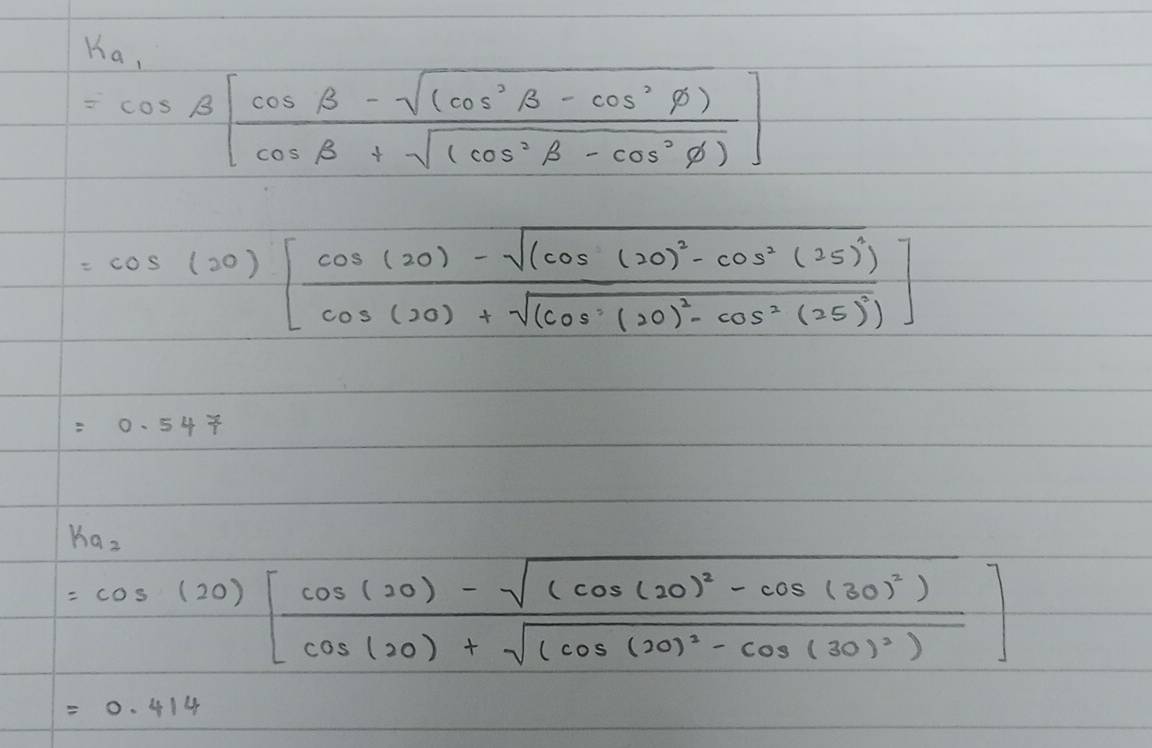 Ka₁
= cos β [ cos β - √(cos² β - cos² ø) / cos β + √(cos² β - cos² ø) ]
= cos (20) [ cos (20) - √(cos (20)² - cos² (25)²) / cos (20) + √(cos² (20)² - cos² (25)²) ]
= 0.547
Ka₂
= cos (20) [ cos (20) - √(cos (20)² - cos (30)²) / cos (20) + √(cos (20)² - cos (30)²) ]
= 0.414